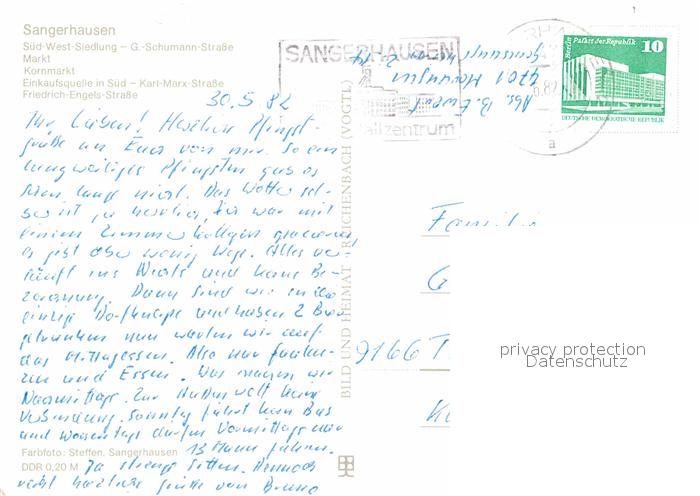 Sangerhausen
Süd-West-Siedlung – G.-Schumann-Straße
Markt
Kornmarkt
Einkaufsquelle in Süd – Karl-Marx-Straße
Friedrich-Engels-Straße
30.5.82
Ihr Lieben! Herzliche Pfingst-
grüße an Euch von mir. So ein
langweiliges Pfingsten gab es
schon lange nicht. Das Wetter sel-
ber ist ja herrlich, war mit
einem Zimmerkollegen spazieren
es gibt aber wenig Wege. Alles ver-
läuft ins Wirts und keine Be-
Dann sind wir in die
einzige Dorfkneipe und haben 2 Bier
getrunken nun warten wir auf
das Mittagessen. Also nur faulen-
zen und Essen. Was machen wir
Nachmittags. Zur Außenwelt keine
Verbindung. Sonntag fährt kein Bus
und Wochentags dürfen Vormittags nur
13 Mann fahren.
Ja strenge Sitten. Dennoch
recht herzliche Grüße von Bruno
Farbfoto: Steffen, Sangerhausen
DDR 0,20 M
BILD UND HEIMAT REICHENBACH (VOGTL)
SANGERHAUSEN
allzentrum
Abs. B. Ewert
4701
Berlin Palast der Republik
10
DEUTSCHE DEMOKRATISCHE REPUBLIK
a
Familie
G
9166 T
privacy protection
Datenschutz